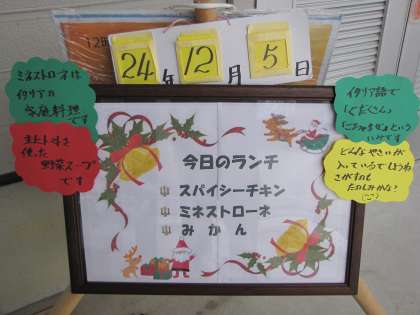 12月
24年12月5日
ミネストローネは
イタリアの
家庭料理
です
トマトを
使った
野菜スープ
です
イタリア語で
「ぐだくさん」
「ごちゃまぜ」という
いみです
どんなやさいが
入っているでしょうね
さがすのも
たのしみかな?
今日のランチ
スパイシーチキン
ミネストローネ
みかん